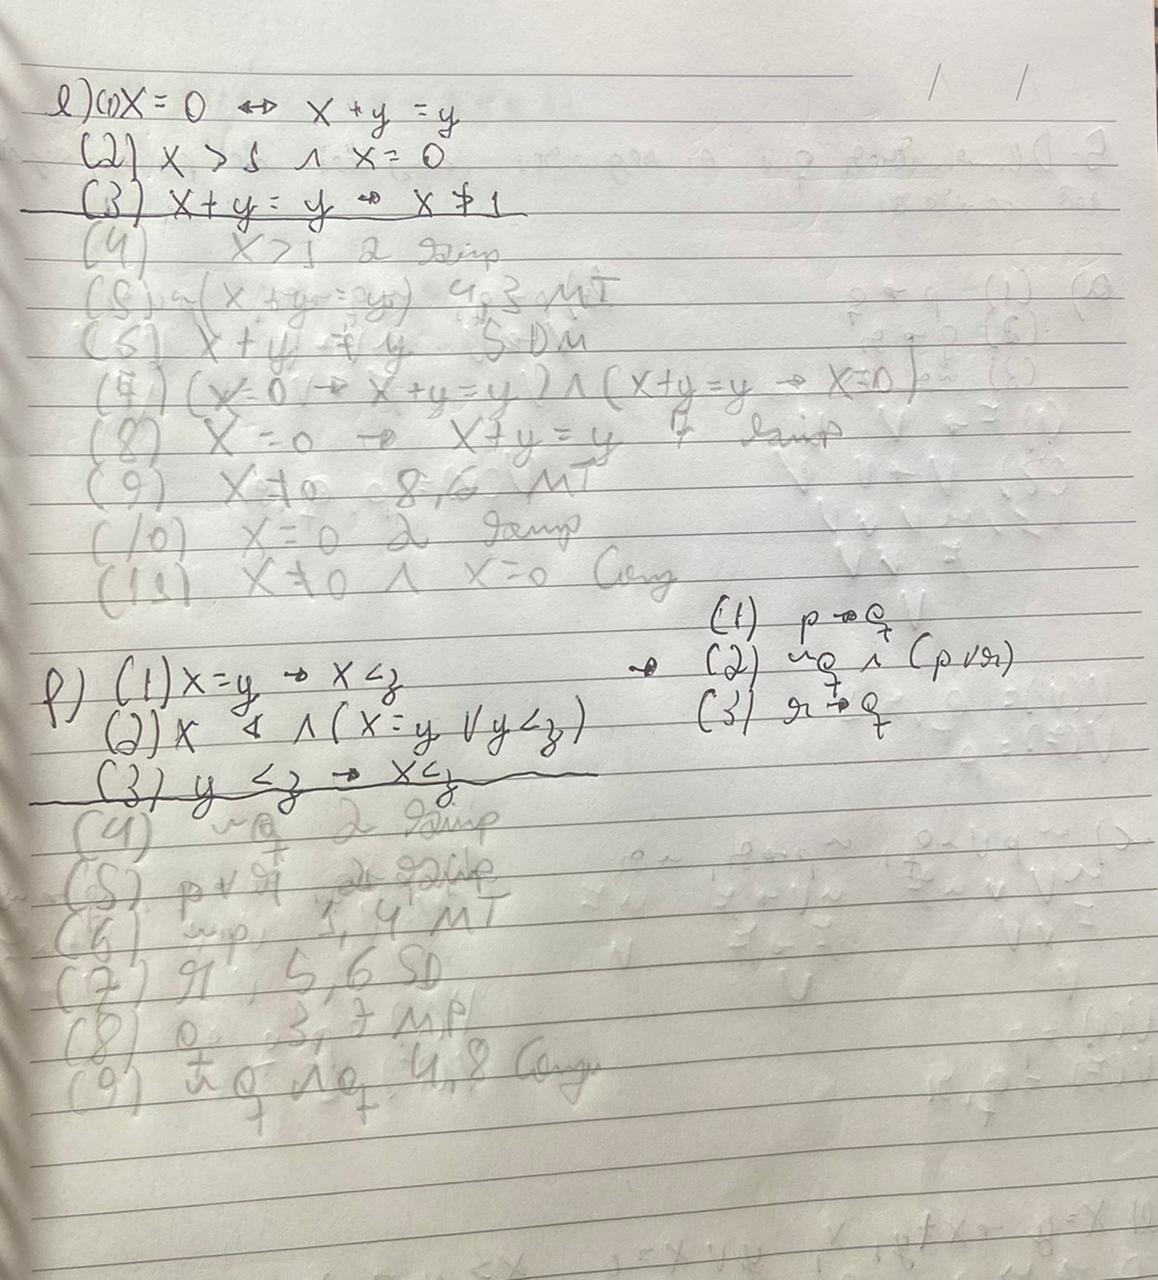 e) (1) X = 0 ↔ X + y = y
(2) X > 1 ∧ X = 0
(3) X + y = y → X ≯ 1
(4) X > 1 2 Simp
(5) ~(X + y = y) 4,3 MT
(6) X + y ≠ y 5 DM
(7) (X = 0 → X + y = y) ∧ (X + y = y → X = 0)
(8) X = 0 → X + y = y 7 Simp
(9) X ≠ 0 8,6 MT
(10) X = 0 2 Simp
(11) X ≠ 0 ∧ X = 0 Conj
f) (1) X = y → X < z
(2) X ≮ ∧ (X = y ∨ y < z)
(3) y < z → X < z
→ (1) p → q
(2) ~q ∧ (p ∨ r)
(3) r → q
(4) ~q 2 Simp
(5) p ∨ r 2 Simp
(6) ~p 1,4 MT
(7) r 5,6 SD
(8) q 3,7 MP
(9) ~q ∧ q 4,8 Conj